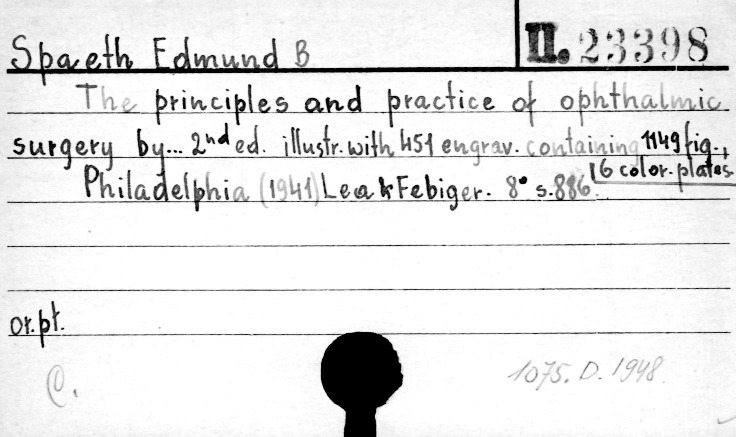 Spaeth Edmund B
II. 23398
The principles and practice of ophthalmic
surgery by... 2nd ed. illustr. with 451 engrav. containing 1149 fig.,
6 color. plates
Philadelphia (1941) Lea & Febiger. 8° s. 886.
or. pł.
C.
1075. D. 1948